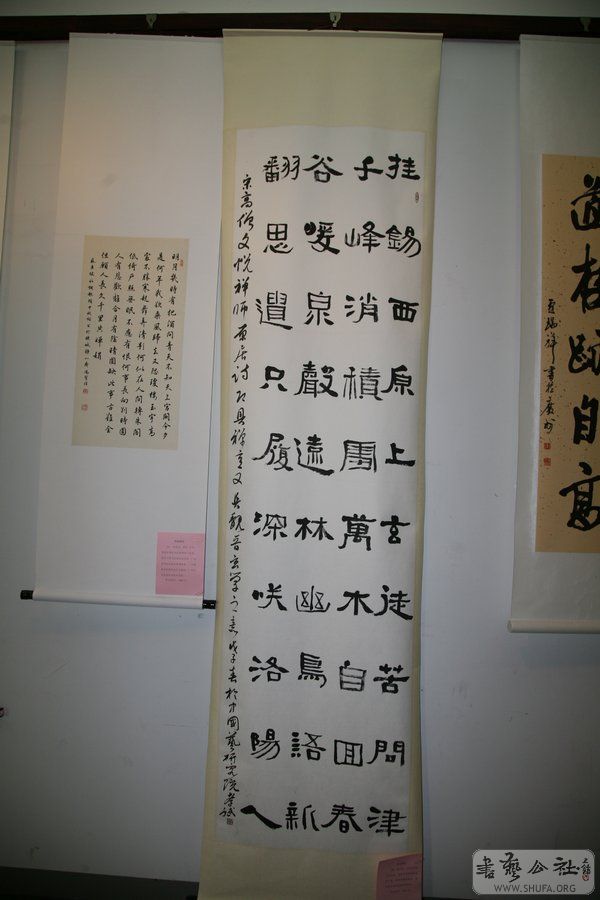 道存跡自高
挂錫西原上玄徒苦問津
千峰消積團萬木自囬春
谷暖泉聲遠林幽鳥語新
翻思遺只履深咲洛陽人
宋高僧文悅禪師原居詩頗具禪意又具魏晉玄學之意戊子春於中國藝研究院
明月幾時有把酒問青天不知天上宮闕今夕
是何年我欲乘風歸去又恐瓊樓玉宇高
處不勝寒起舞弄清影何似在人間轉朱閣
低綺戶照無眠不應有恨何事長向別時圓
人有悲歡離合月有陰晴圓缺此事古難全
但願人長久千里共嬋娟
書藝公社
WWW.SHUFA.ORG